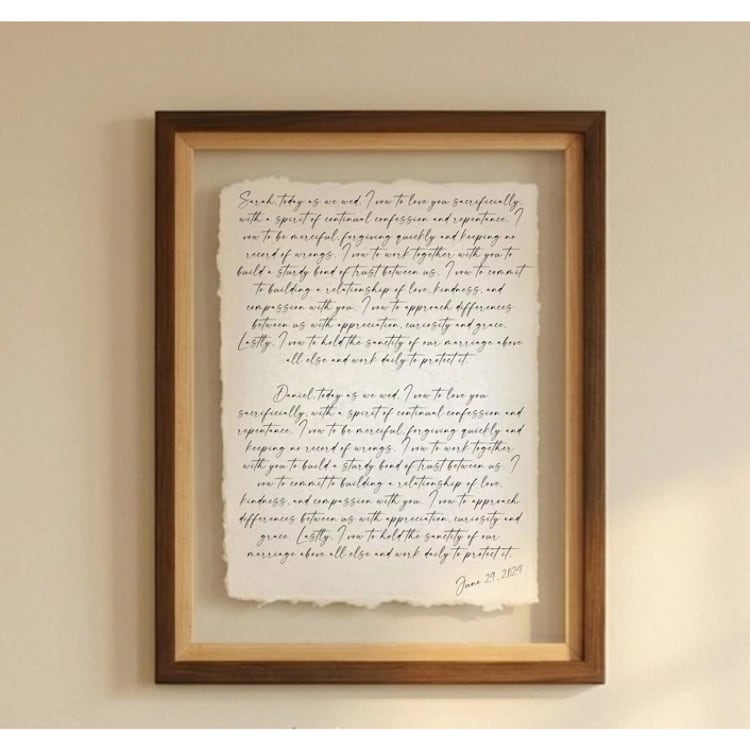 Sarah, today as we wed, I vow to love you sacrificially,
with a spirit of continual confession and repentance. I
vow to be merciful, forgiving quickly and keeping no
record of wrongs. I vow to work together with you to
build a sturdy bond of trust between us. I vow to commit
to building a relationship of love, kindness, and
compassion with you. I vow to approach differences
between us with appreciation, curiosity and grace.
Lastly, I vow to hold the sanctity of our marriage above
all else and work daily to protect it.
Daniel, today as we wed, I vow to love you
sacrificially, with a spirit of continual confession and
repentance. I vow to be merciful, forgiving quickly and
keeping no record of wrongs. I vow to work together
with you to build a sturdy bond of trust between us. I
vow to commit to building a relationship of love,
kindness, and compassion with you. I vow to approach
differences between us with appreciation, curiosity and
grace. Lastly, I vow to hold the sanctity of our
marriage above all else and work daily to protect it.
June 29, 2029